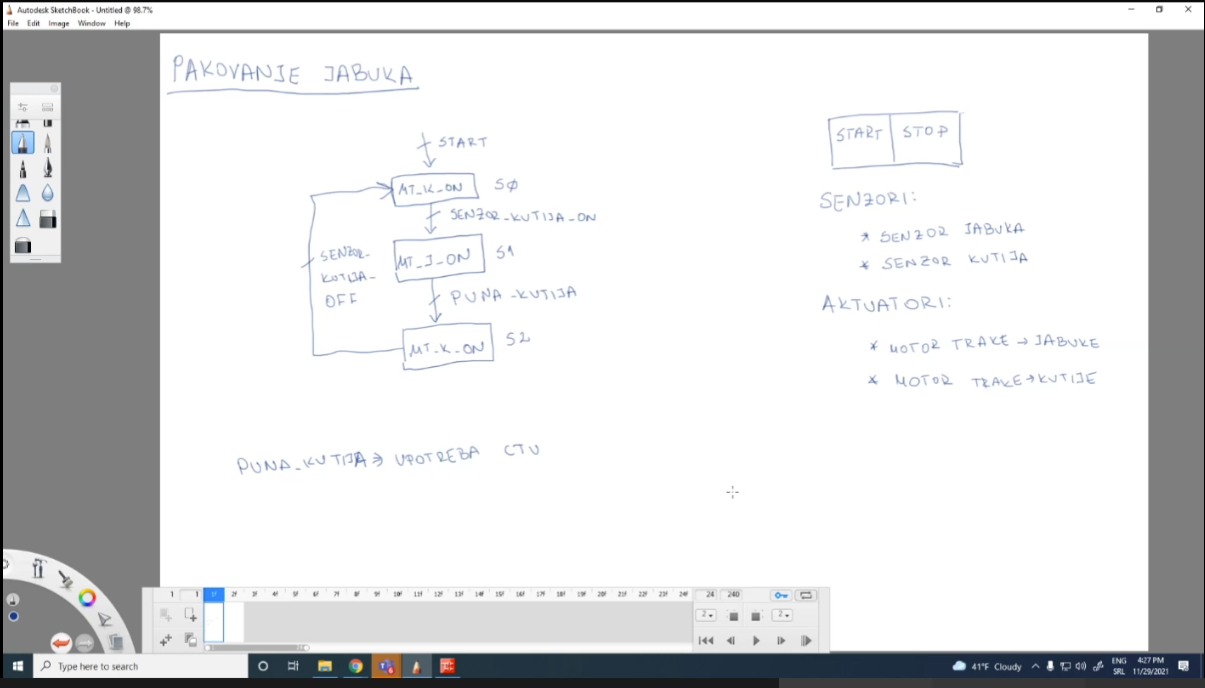 Autodesk SketchBook - Untitled @ 98.7%
File Edit Image Window Help
PAKOVANJE JABUKA
START
MT_K_ON S0
SENZOR_KUTIJA_ON
MT_J_ON S1
PUNA_KUTIJA
MT_K_ON S2
SENZOR-
KUTIJA-
OFF
PUNA_KUTIJA → UPOTREBA CTU
START STOP
SENZORI:
* SENZOR JABUKA
* SENZOR KUTIJA
AKTUATORI:
* MOTOR TRAKE → JABUKE
* MOTOR TRAKE → KUTIJE
1 1 1F 2F 3F 4F 5F 6F 7F 8F 9F 10F 11F 12F 13F 14F 15F 16F 17F 18F 19F 20F 21F 22F 23F 24F 24 240
2 2
Type here to search
41°F Cloudy
ENG
SRL
4:27 PM
11/29/2021